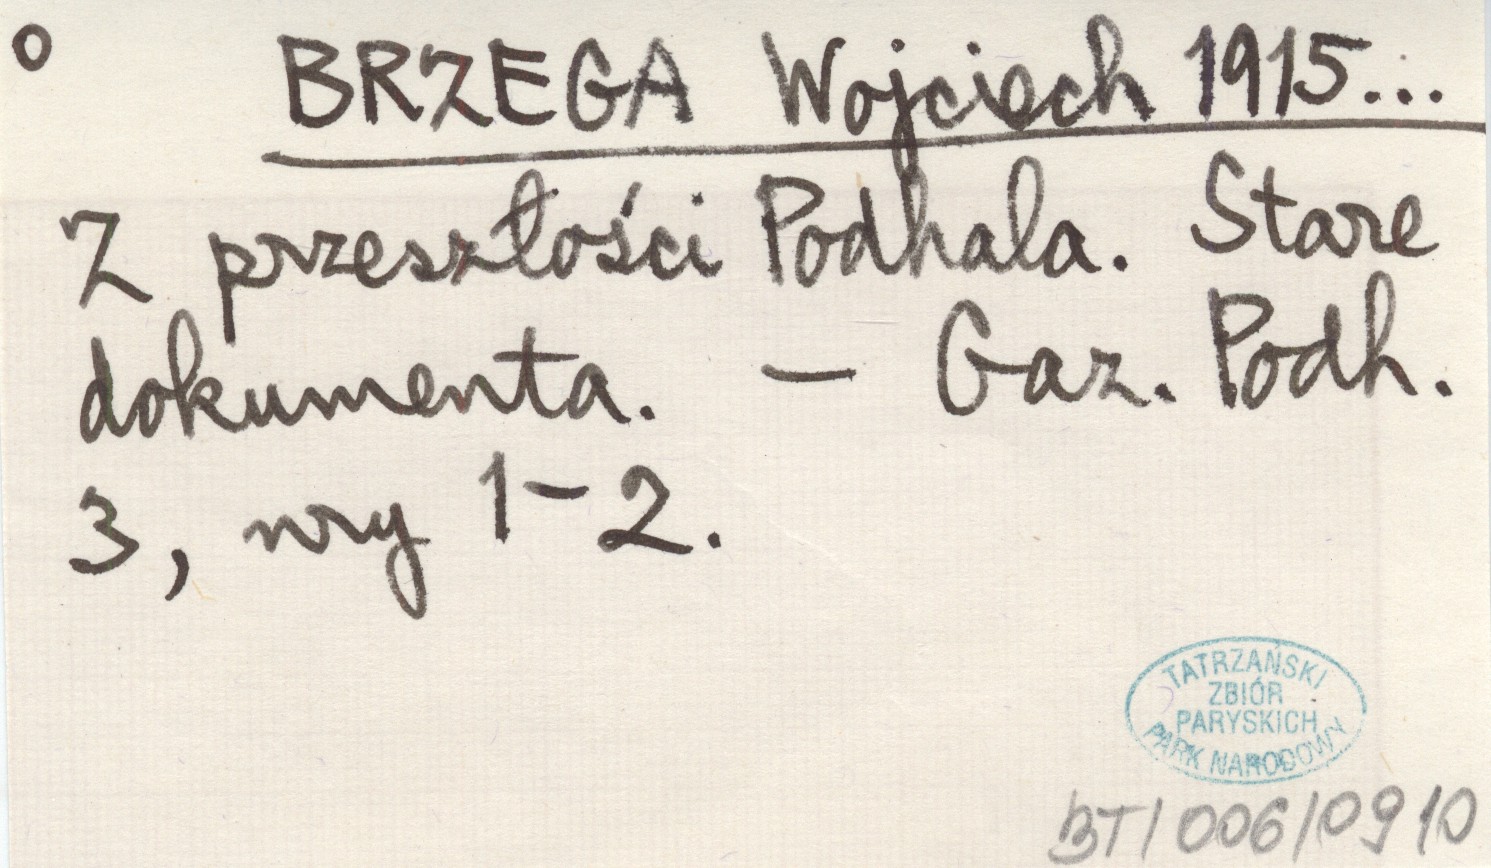 o BRZEGA Wojciech 1915...
Z przeszłości Podhala. Stare
dokumenta. — Gaz. Podh.
3, nry 1–2.
TATRZAŃSKI
ZBIÓR
PARYSKICH
PARK NARODOWY
BT/006/0910